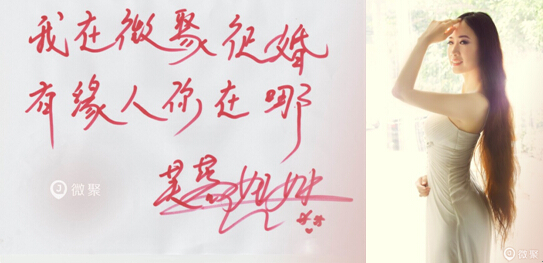 我在微聚征婚
有缘人你在哪
芙蓉姐姐
微聚
微聚